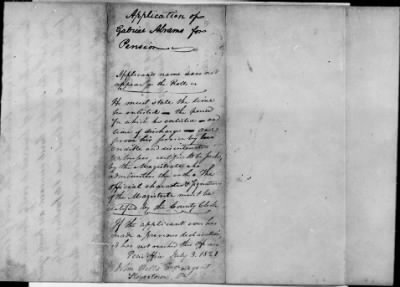 Application of
Gabriel Abrams for
Pension
Applicants name does not
appear on the Rolls
He must state the time
he enlisted — the period
for which he enlisted — and
time of discharge — and
prove his service by two
credible and disinterested
witnesses, certified to be such,
by the Magistrate who
administers the oath & the
official character & signature
of the Magistrate must be
certified by the County Clerk
If the applicant ever has
made a previous declaration,
it has not reached this Office
Pen. Office July 3. 1821